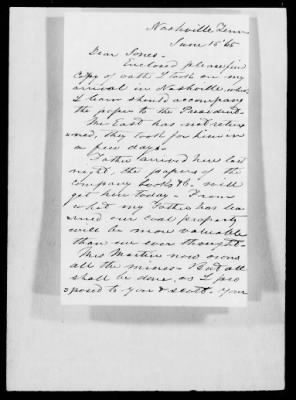 Nashville Tenn
June 15 '65
Dear Jones -
Enclosed please find
Copy of oath I took on my
arrival in Nashville, which
I learn should accompany
the papers to the President.
Mr East has not return
urned, they look for him in
a few days -
Father arrived here last
night, the papers of the
Company books &c. will
get here today - From
what my Father has lea
rned our coal property
will be more valuable
than we ever thought -
Mrs Martin now owns
all the mines - But all
shall be done, as I pro
posed to you & Scott. Your